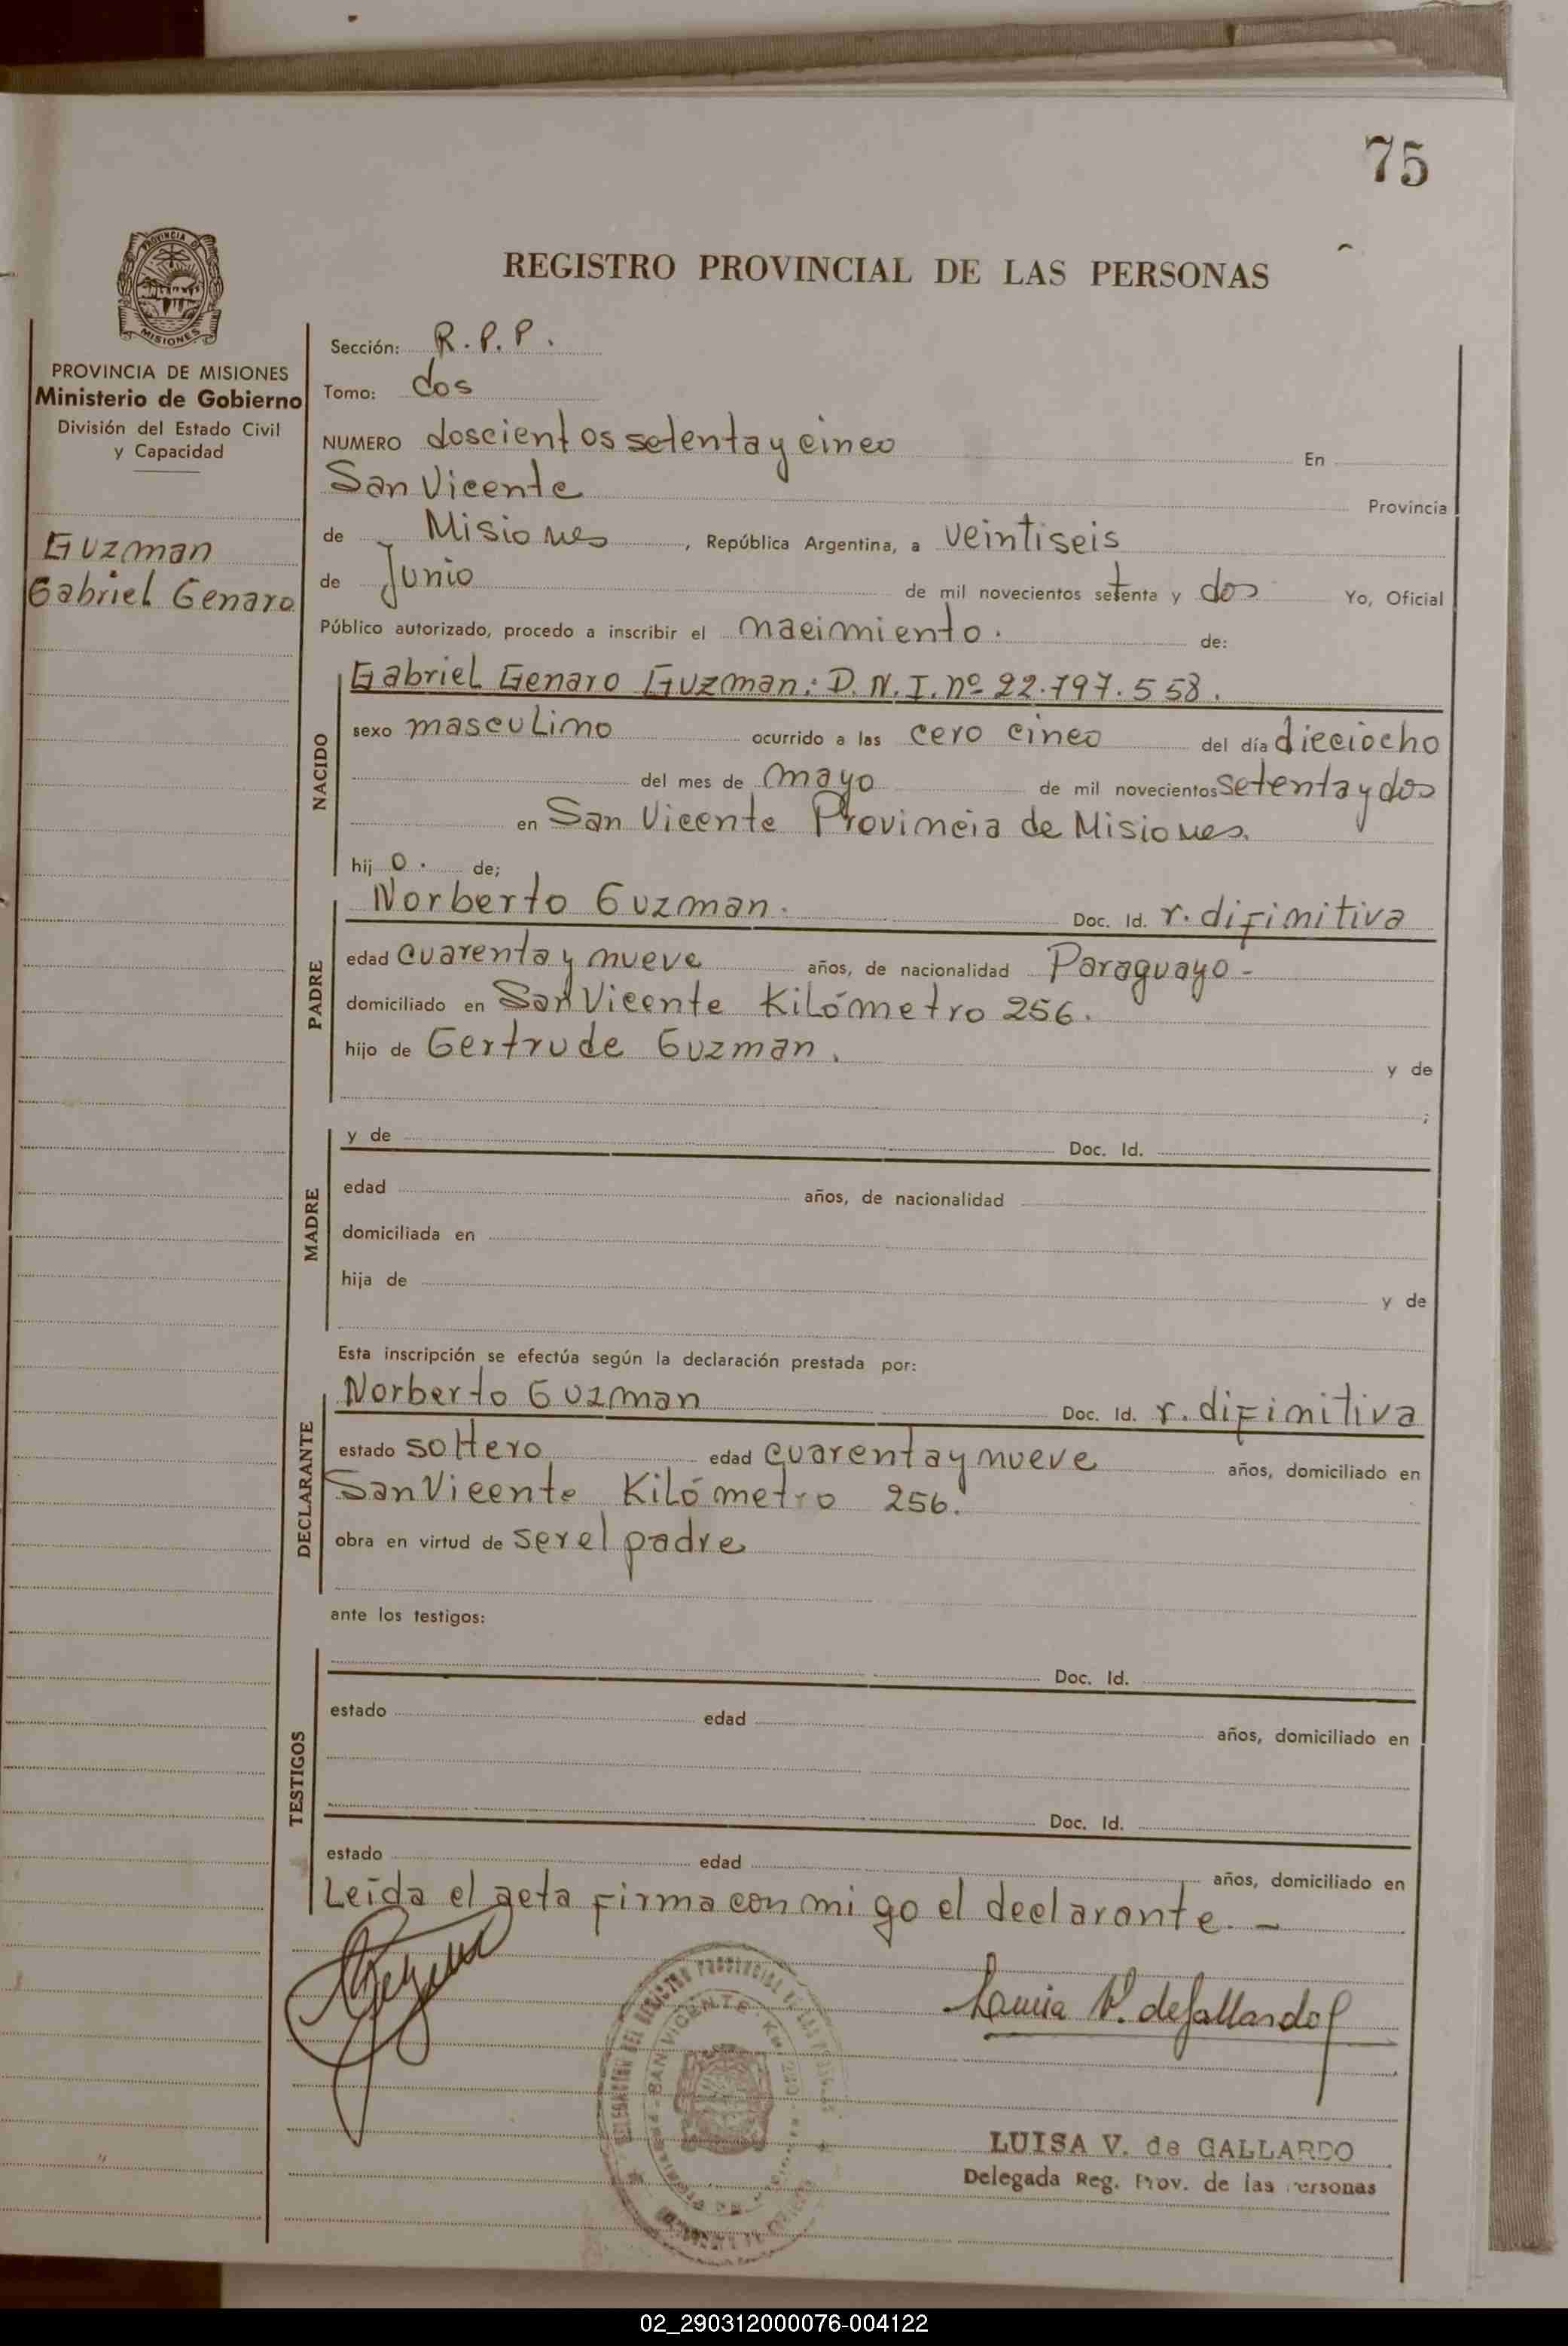 75
REGISTRO PROVINCIAL DE LAS PERSONAS
PROVINCIA DE MISIONES
PROVINCIA DE MISIONES
Ministerio de Gobierno
División del Estado Civil
y Capacidad
Guzman
Gabriel Genaro
Sección: R.P.P.
Tomo: dos
NUMERO doscientos setenta y cinco En
San Vicente Provincia
de Misiones, República Argentina, a veintiseis
de Junio de mil novecientos setenta y dos Yo, Oficial
Público autorizado, procedo a inscribir el nacimiento. de:
NACIDO
Gabriel Genaro Guzman: D.N.I. nº 22.797.558.
sexo masculino ocurrido a las cero cinco del día dieciocho
del mes de mayo de mil novecientos setenta y dos
en San Vicente Provincia de Misiones.
hijo. de;
PADRE
Norberto Guzman. Doc. Id. r. difinitiva
edad cuarenta y nueve años, de nacionalidad Paraguayo -
domiciliado en San Vicente Kilómetro 256.
hijo de Gertrude Guzman. y de
;
MADRE
y de Doc. Id.
edad años, de nacionalidad
domiciliada en
hija de y de
Esta inscripción se efectúa según la declaración prestada por:
DECLARANTE
Norberto Guzman Doc. Id. r. difinitiva
estado soltero edad cuarenta y nueve años, domiciliado en
San Vicente Kilómetro 256.
obra en virtud de ser el padre
ante los testigos:
TESTIGOS
Doc. Id.
estado edad años, domiciliado en
Doc. Id.
estado edad años, domiciliado en
Leída el acta firma con migo el declarante. -
DELEGACION DEL REGISTRO PROVINCIAL DE LAS
SAN VICENTE
V. de Gallardo
LUISA V. de GALLARDO
Delegada Reg. Prov. de las Personas
02_290312000076-004122